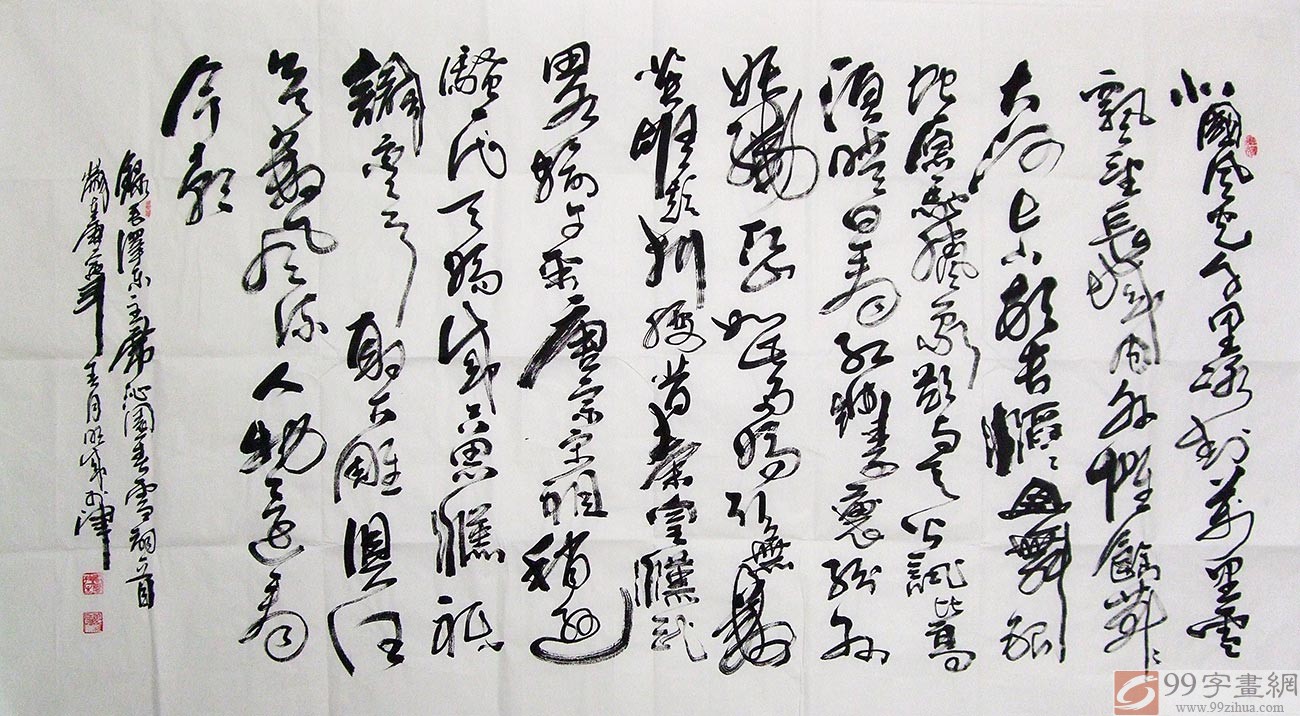 北國風光千里冰封萬里雪
飄望長城內外惟餘莽〻
大河上下頓失滔〻山舞銀
蛇原馳蠟象欲與天公試比高
須晴日看紅妝素裹分外
妖嬈江山如此多嬌引無數
英雄競折腰惜秦皇漢武
略輸文采唐宗宋祖稍遜
騷一代天驕成吉思漢祇
識彎弓射大雕俱往
矣數風流人物還看
今朝
錄毛澤東主席沁園春雪詞一首
歲在庚寅年
99字畫網
www.99zihua.com